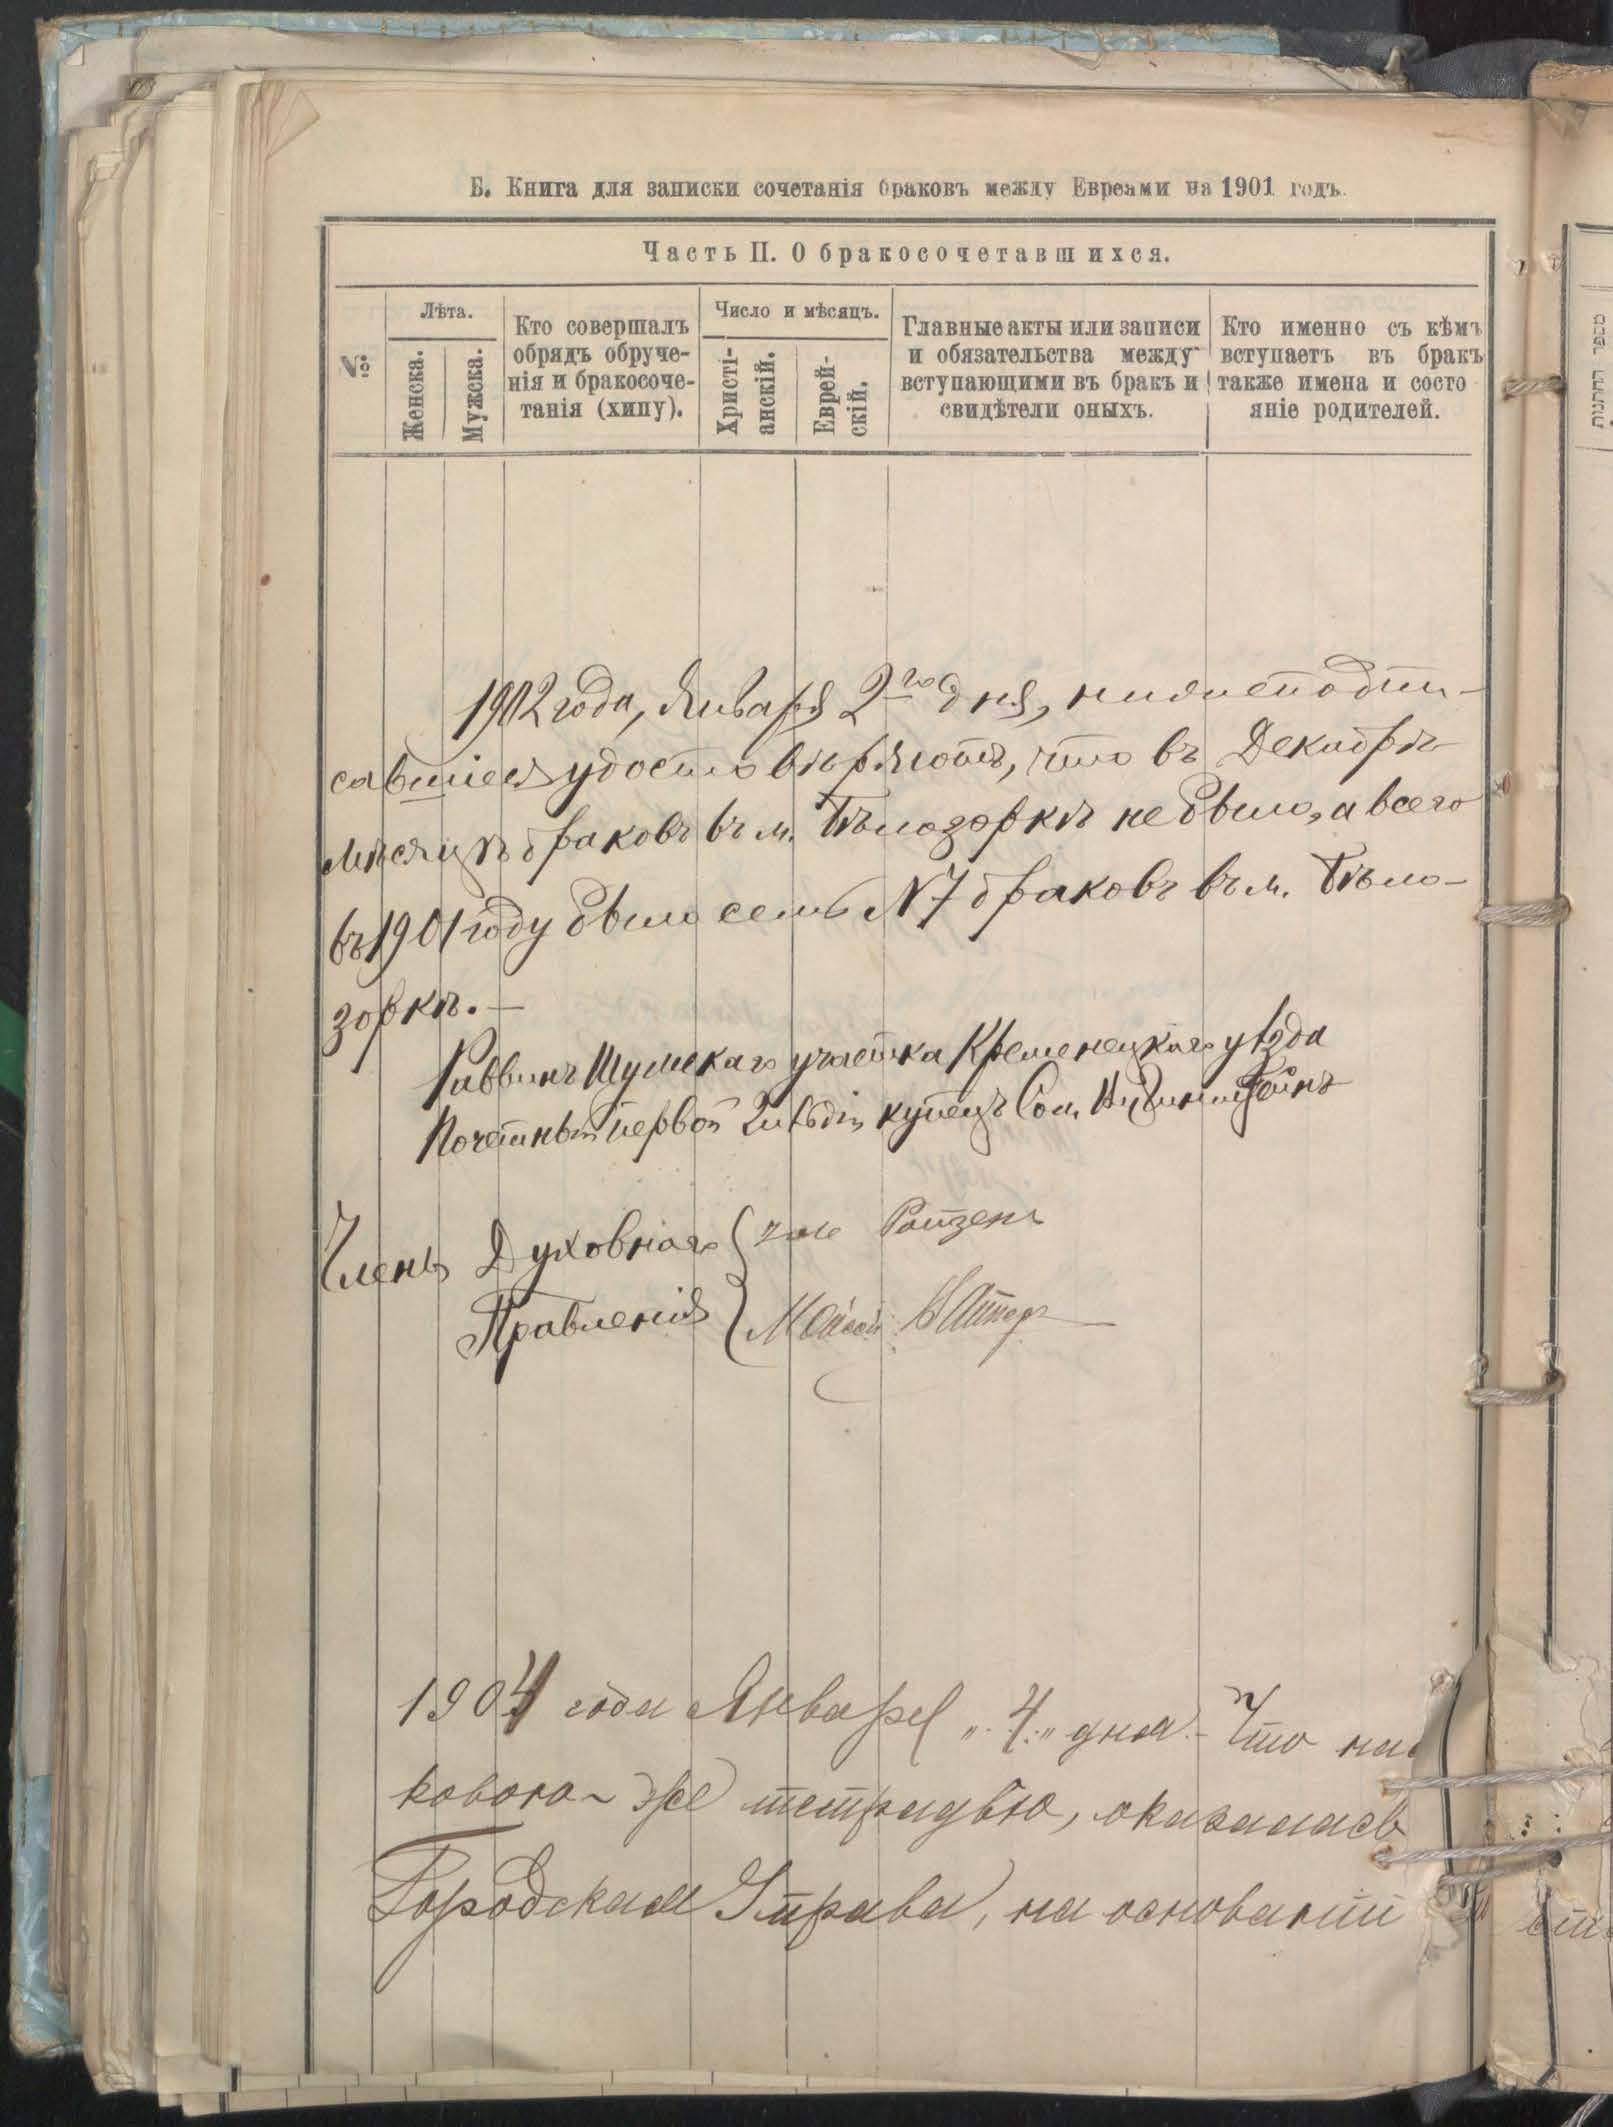 Б. Книга для записки сочетанія браковъ между Евреями на 1901 годъ.
Часть II. О бракосочетавшихся.
№
Лѣта.
Женска.
Мужска.
Кто совершалъ
обрядъ обруче-
нія и бракосоче-
танія (хипу).
Число и мѣсяцъ.
Христі-
анскій.
Еврей-
скій.
Главные акты или записи
и обязательства между
вступающими въ бракъ и
свидѣтели оныхъ.
Кто именно съ кѣмъ
вступаетъ въ бракъ
также имена и состо
яніе родителей.
1902 года, Января 2го дня, нижеподпи-
савшіеся удостовѣряютъ, что въ Декабрѣ
мѣсяцѣ браковъ въ м. Бѣлозоркѣ не было, а всего
въ 1901 году было семь N 7 браковъ въ м. Бѣло-
зоркѣ. —
Раввинъ Шумскаго участка Кременецкаго уѣзда
Почетный первой Гильдіи купецъ Сол.
Члены Духовнаго
Правленія
Мойсей
1904 года Января „4„ дня Что
ковою-же тетрадью, оказалась
Городская Управа, на основаніи
ספר החתונות